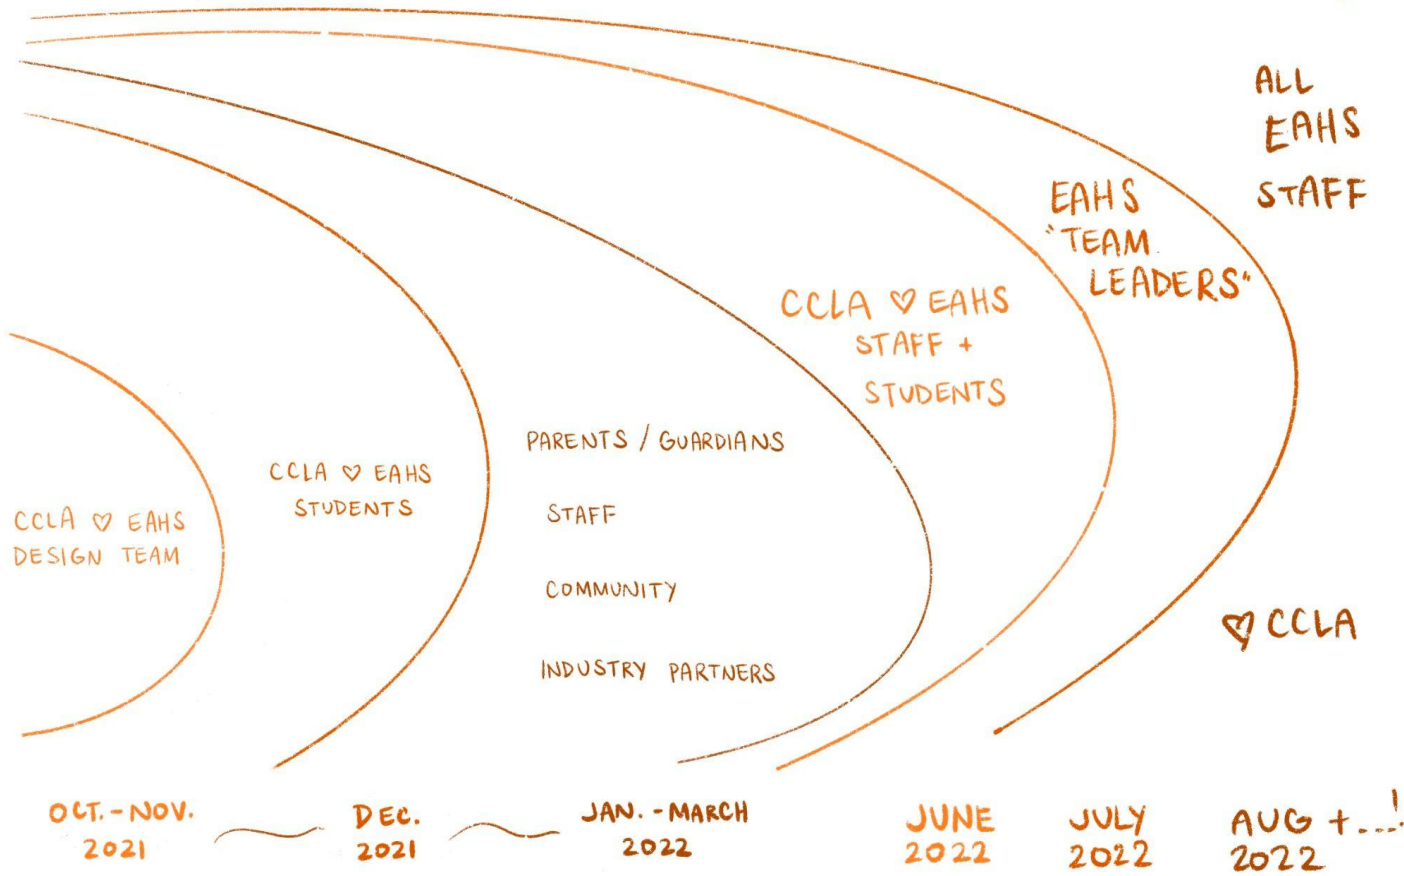 CCLA ♡ EAHS
DESIGN TEAM
CCLA ♡ EAHS
STUDENTS
PARENTS / GUARDIANS
STAFF
COMMUNITY
INDUSTRY PARTNERS
CCLA ♡ EAHS
STAFF +
STUDENTS
EAHS
"TEAM
LEADERS"
ALL
EAHS
STAFF
♡ CCLA
OCT. - NOV.
2021
DEC.
2021
JAN. - MARCH
2022
JUNE
2022
JULY
2022
AUG + ...!
2022